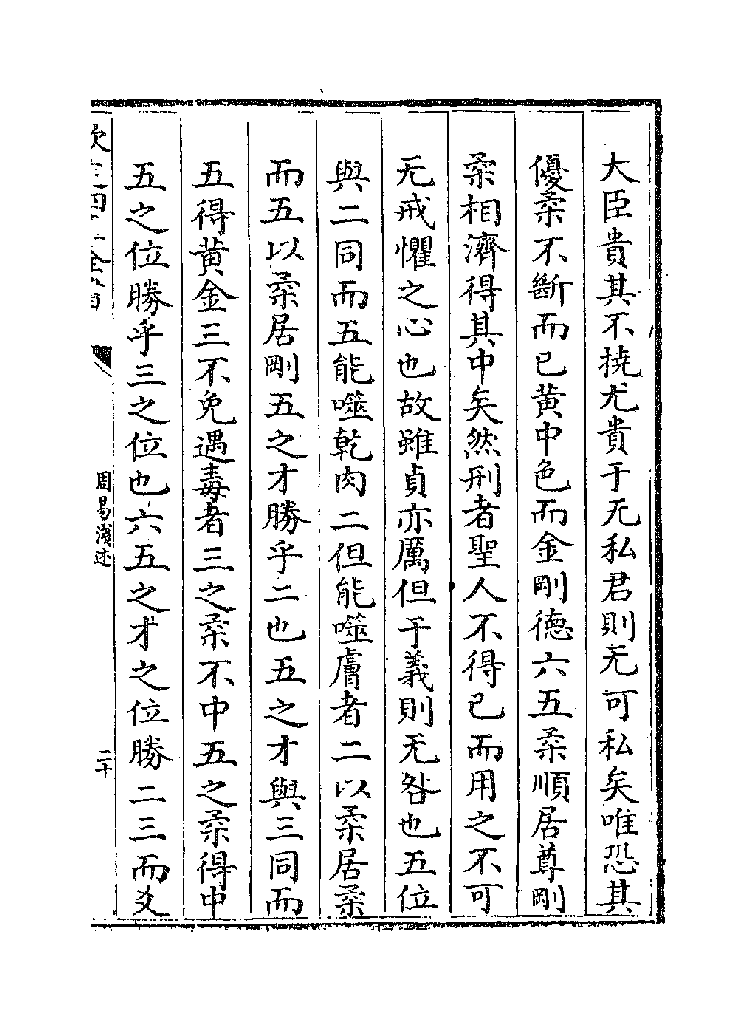 大臣貴其不撓尤貴于无私君則无可私矣唯恐其
優柔不斷而已黃中色而金剛德六五柔順居尊剛
柔相濟得其中矣然刑者聖人不得已而用之不可
无戒懼之心也故雖貞亦厲但于義則无咎也五位
與二同而五能噬乾肉二但能噬膚者二以柔居柔
而五以柔居剛五之才勝乎二也五之才與三同而
五得黃金三不免遇毒者三之柔不中五之柔得中
五之位勝乎三之位也六五之才之位勝二三而爻
周易淺述
二十